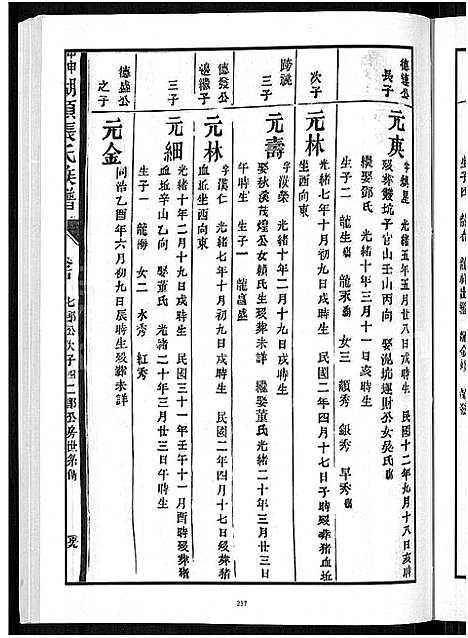 德達公
長子
元庚
字煥星 光緒五年五月廿八日戌時生 民國十二年九月十八日戌時
歿葬雙坑子官山壬山丙向 娶泥坑運財公女吳氏
續娶鄧氏 光緒十年三月十一日亥時生
生子二 龍生 龍來 女三 顏秀 銀秀 早秀
次子
元林
字漢仁 光緒七年十月初九日戌時生 民國二年四月十七日子時歿葬豬血坵
坐西向東
跨說
三子
元壽
字漢榮 光緒十年二月十九日戌時生
娶秋溪茂煌公女賴氏生歿葬未詳 繼娶董氏光緒二十年三月廿三日
午時生 生子一 龍盛
德發公
過繼子
元林
字漢仁 光緒七年十月初九日戌時生 民國二年四月十七日歿葬豬
血坵坐西向東
三子
元細
光緒十年二月十九日戌時生 民國三十一年壬午十一月酉時歿葬豬
血坵辛山乙向 娶董氏 光緒二十年三月廿三日午時生
生子一 龍海 女二 水秀 紅秀
德盛公
之子
元金
同治乙酉年六月初九日辰時生歿葬未詳
湖頭張氏族譜
七郎公次子四二郎公房世系傳
237